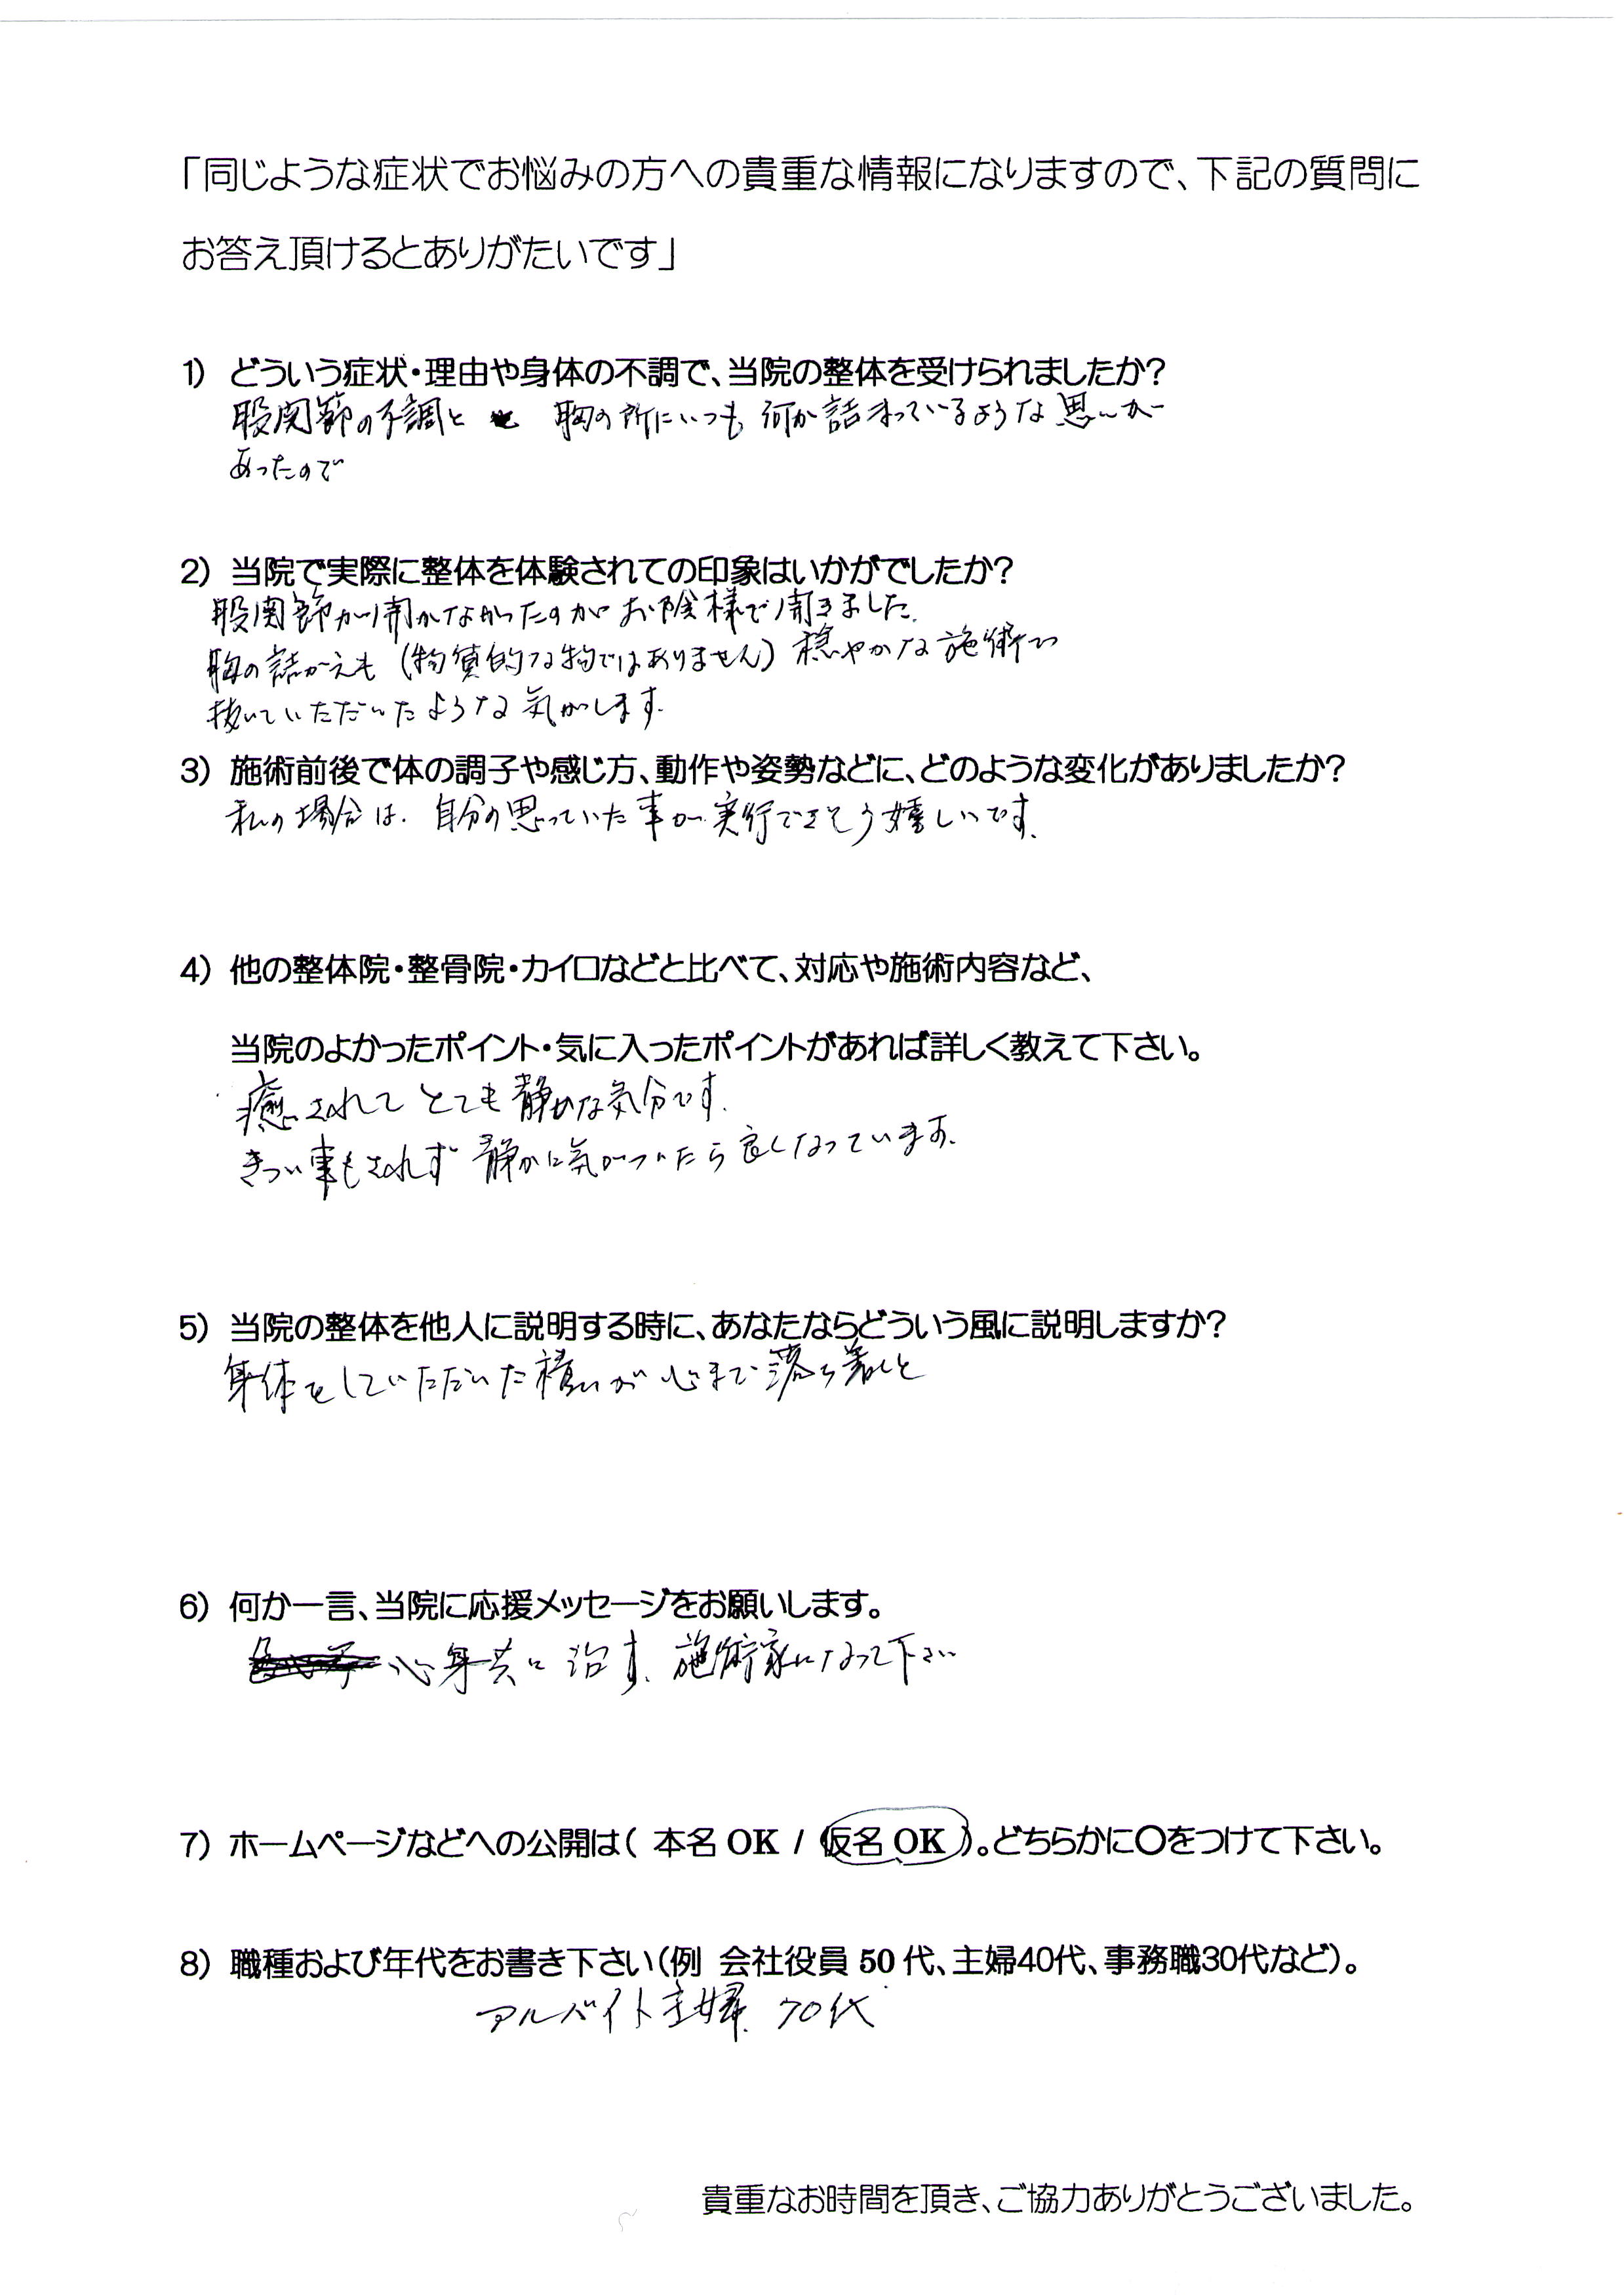 「同じような症状でお悩みの方への貴重な情報になりますので、下記の質問に
お答え頂けるとありがたいです」
1) どういう症状・理由や身体の不調で、当院の整体を受けられましたか?
股関節の不調と 胸の所にいつも何か詰まっているような思いが
あったので
2) 当院で実際に整体を体験されての印象はいかがでしたか?
股関節が開かなかったのがお陰様で開きました。
胸の詰かえも(物質的な物ではありません)穏やかな施術で
抜いていただいたような気がします。
3) 施術前後で体の調子や感じ方、動作や姿勢などに、どのような変化がありましたか?
私の場合は、自分の思っていた事が実行できそう嬉しいです。
4) 他の整体院・整骨院・カイロなどと比べて、対応や施術内容など、
当院のよかったポイント・気に入ったポイントがあれば詳しく教えて下さい。
癒されてとても静かな気分です。
きつい事もされず静かに気がついたら良くなっています。
5) 当院の整体を他人に説明する時に、あなたならどういう風に説明しますか?
身体をしていただいた積りが心まで落ち着くと
6) 何か一言、当院に応援メッセージをお願いします。
心身共に治す、施術家になって下さい
7) ホームページなどへの公開は( 本名 OK / 仮名 OK )。どちらかに○をつけて下さい。
8) 職種および年代をお書き下さい(例 会社役員 50 代、主婦40代、事務職30代など)。
アルバイト主婦、70代
貴重なお時間を頂き、ご協力ありがとうございました。